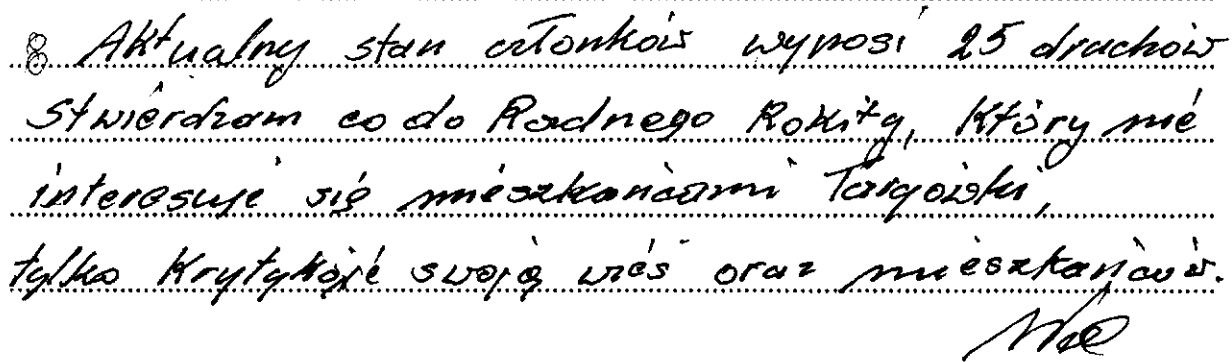 8 Aktualny stan członków wynosi 25 druchów
Stwierdzam co do Radnego Rokity, który nie
interesuje się mieszkańcami Targówki,
tylko Krytykuje swoją wieś oraz mieszkańców.